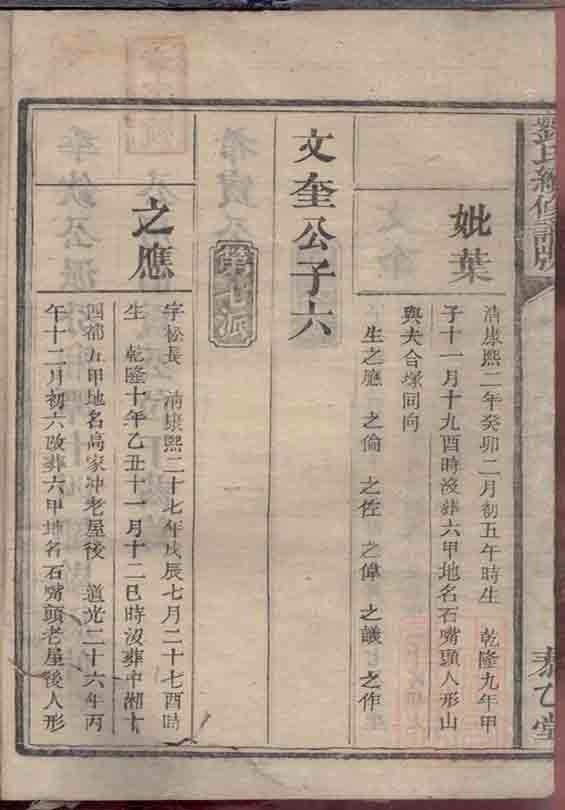 劉氏續修譜牒
妣葉
清康熙二年癸卯二月初五午時生 乾隆九年甲
子十一月十九酉時沒葬六甲地名石嘴頭人形山
與夫合塚同向
生之應 之倫 之佐 之偉 之議 之作
文奎公子六
第七派
之應
字松長 清康熙二十七年戊辰七月二十七酉時
生 乾隆十年乙丑十一月十二巳時沒葬中湘十
四都五甲地名高家冲老屋後 道光二十六年丙
午十二月初六改葬六甲地名石嘴頭老屋後人形